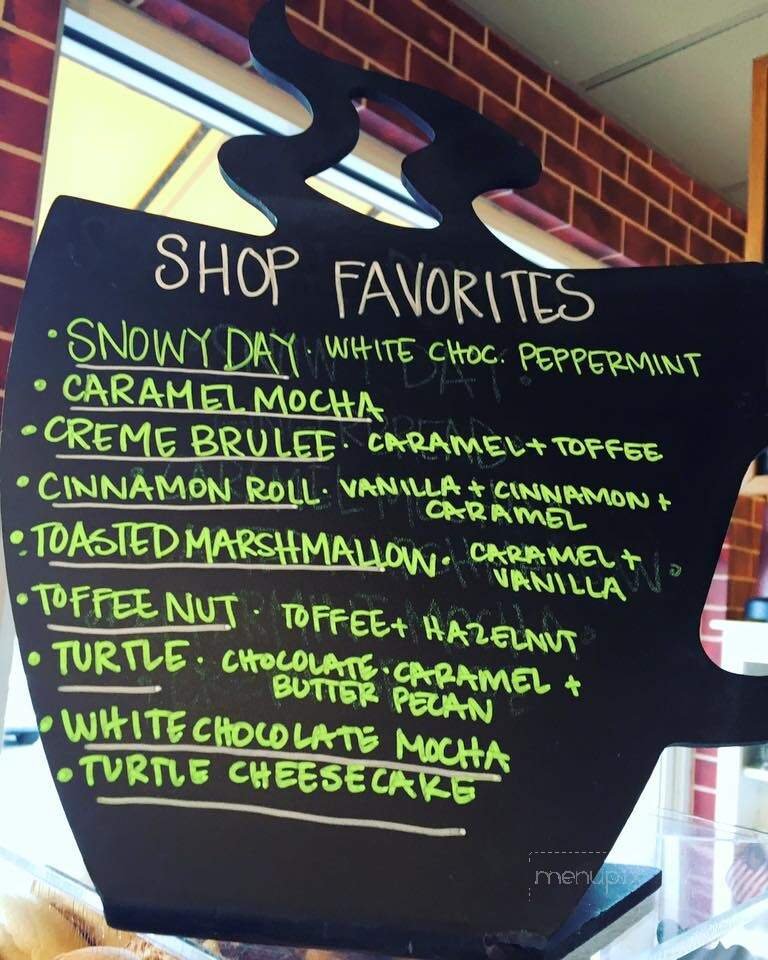 SHOP FAVORITES
• SNOWY DAY · WHITE CHOC. PEPPERMINT
• CARAMEL MOCHA
• CREME BRULEE · CARAMEL + TOFFEE
• CINNAMON ROLL · VANILLA + CINNAMON +
CARAMEL
• TOASTED MARSHMALLOW · CARAMEL +
VANILLA
• TOFFEE NUT · TOFFEE + HAZELNUT
• TURTLE · CHOCOLATE · CARAMEL +
BUTTER PECAN
• WHITE CHOCOLATE MOCHA
• TURTLE CHEESECAKE
menupix